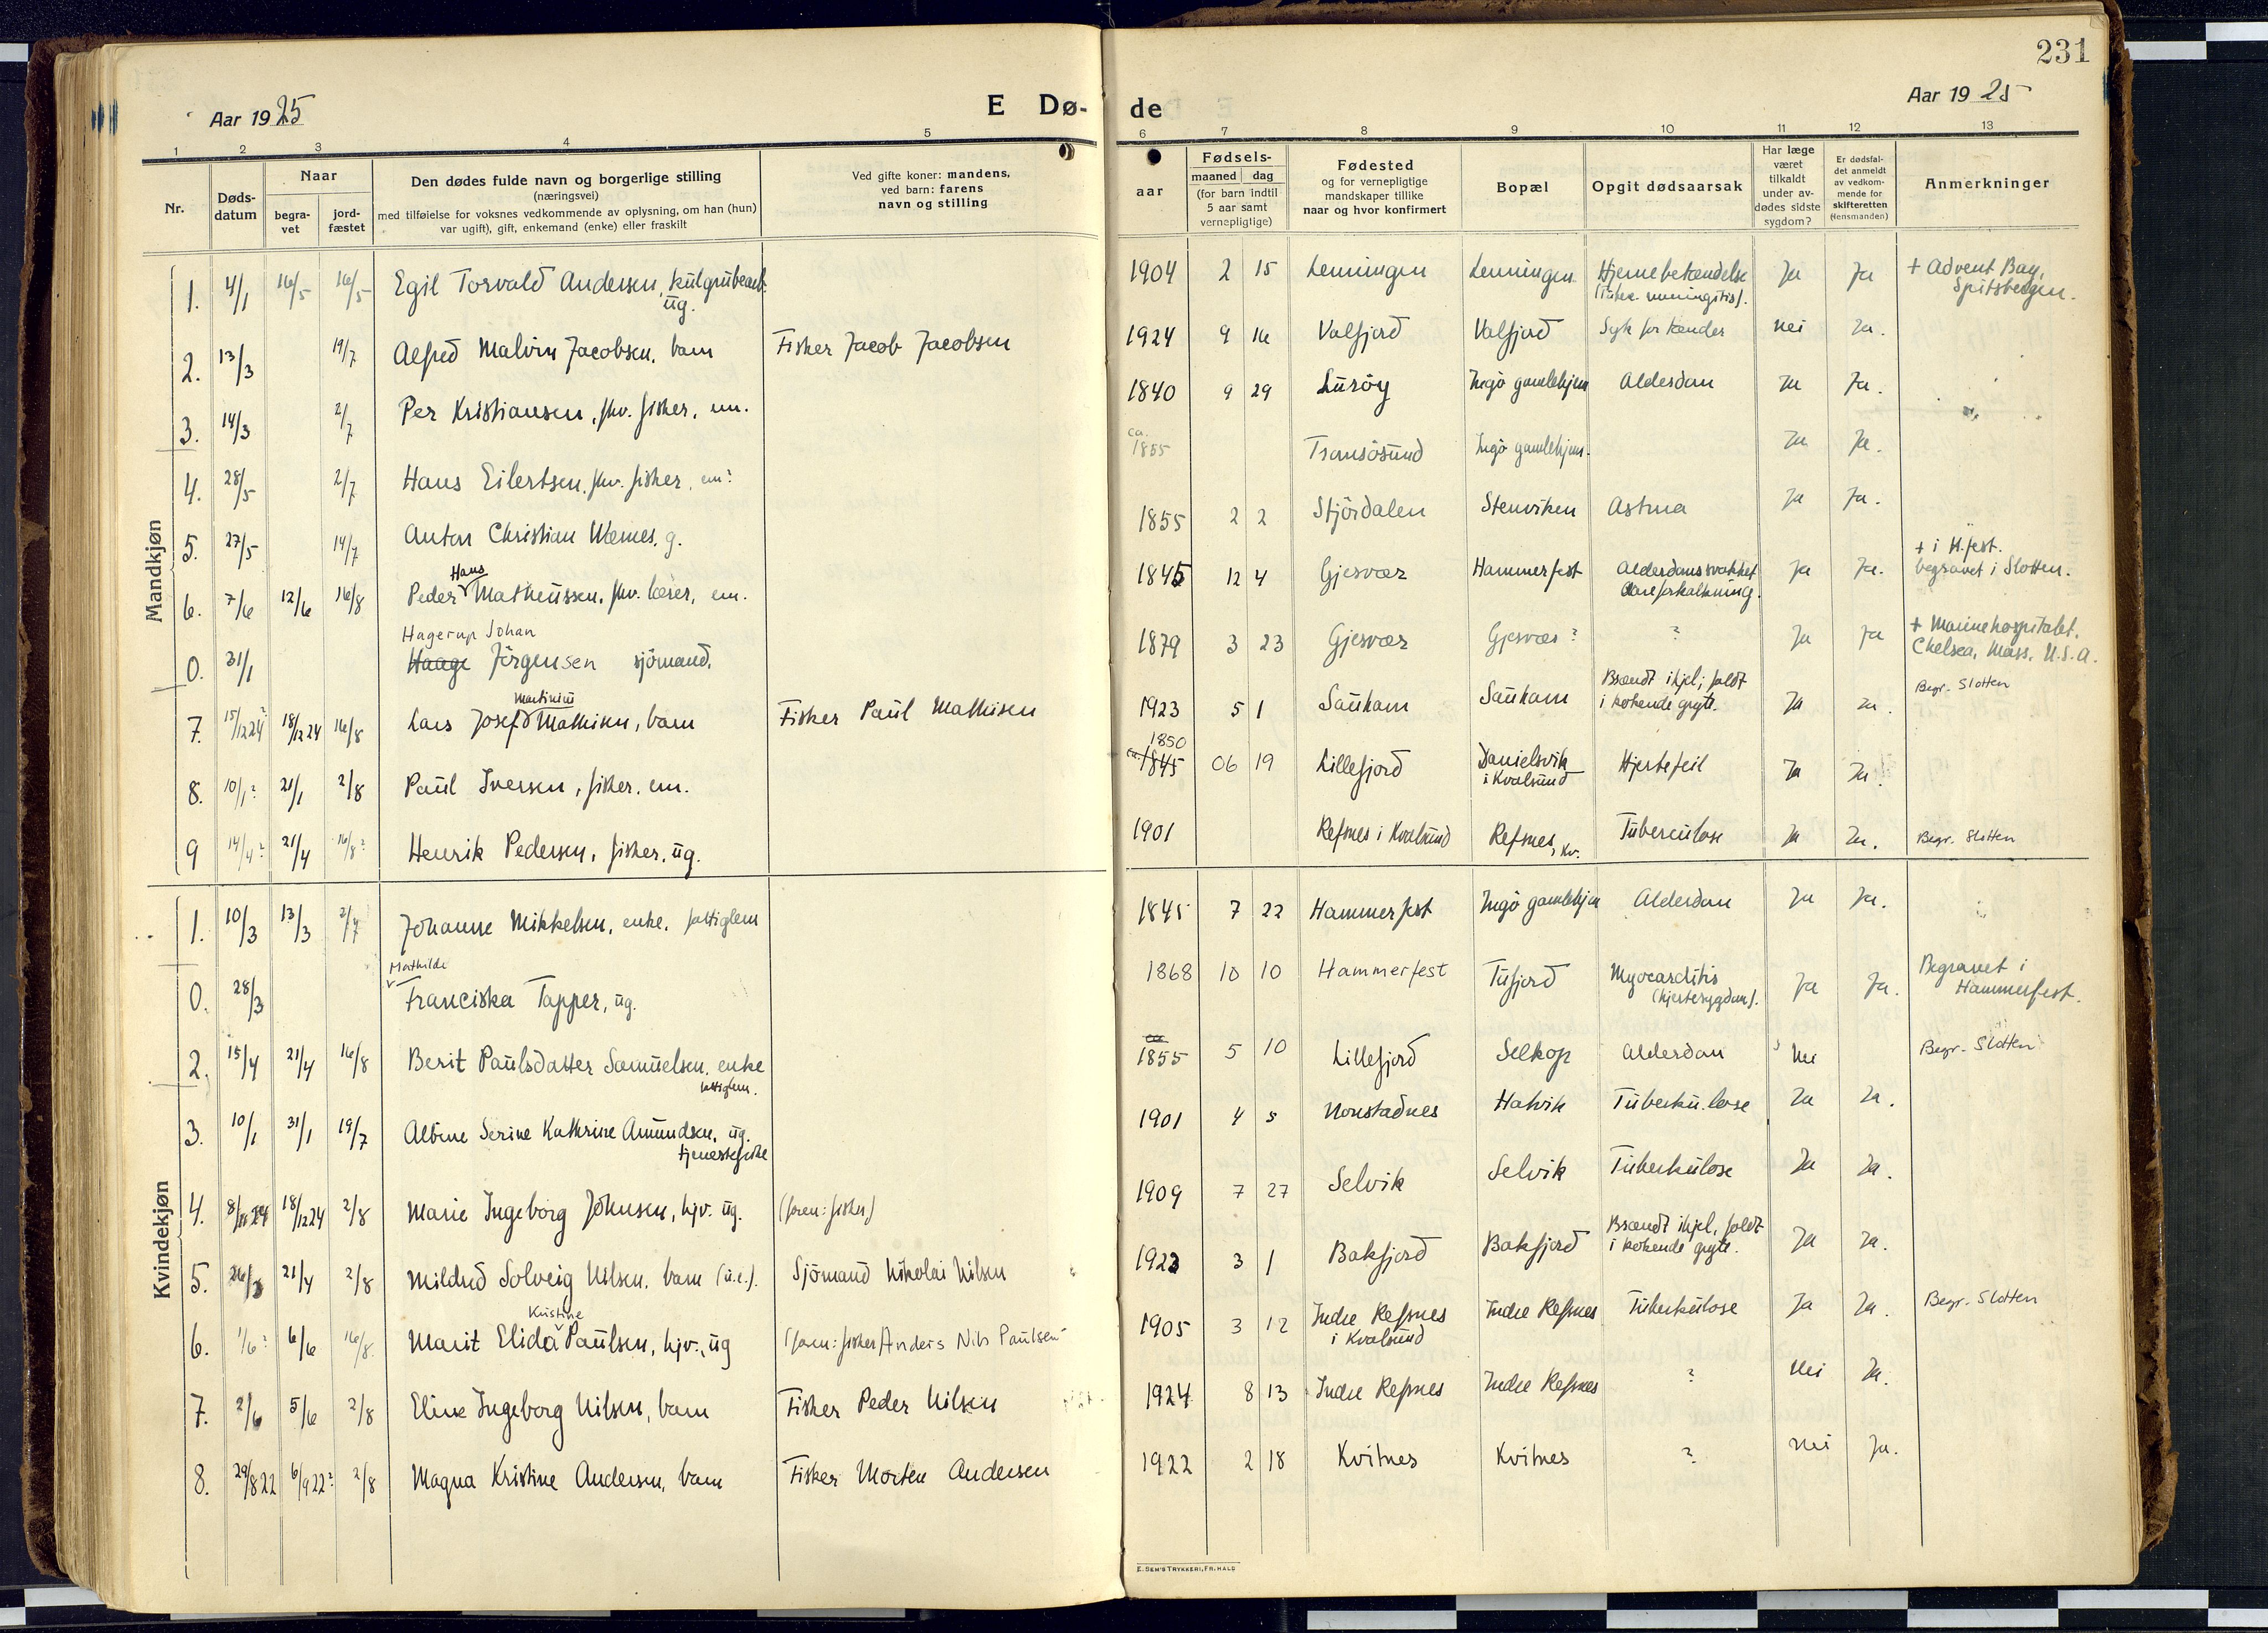 231
Aar 1925
E Dø-
de
Aar 1925
1 2 3 4 5 6 7 8 9 10 11 12 13
Nr.
Døds-
datum
Naar
begra-
vet
jord-
fæstet
Den dødes fulde navn og borgerlige stilling
(næringsvei)
med tilføielse for voksnes vedkommende av oplysning, om han (hun)
var ugift), gift, enkemand (enke) eller fraskilt
Ved gifte koner: mandens,
ved barn: farens
navn og stilling
aar
Fødsels-
maaned dag
(for barn indtil
5 aar samt
vernepligtige)
Fødested
og for vernepligtige
mandskaper tillike
naar og hvor konfirmert
Bopæl
Opgit dødsaarsak
Har læge
været
tilkaldt
under av-
dødes sidste
sygdom?
Er dødsfal-
det anmeldt
av vedkom-
mende for
skifteretten
(lensmanden)
Anmerkninger
Mandkjøn
1. 4/1 16/5 16/5 Egil Torvald Andersen, kulgrubearb. 1904 2 15 Lenningen Lenningen Hjernebetændelse Ja Ja + Advent Bay,
ug. (tuber. meningitis). Spitsbergen.
2. 13/3 19/7 Alfred Malvin Jacobsen, barn Fisker Jacob Jacobsen 1924 9 16 Valfjord Valfjord Syk for tænder Nei Ja.
3. 14/3 2/7 Per Kristiansen, fhv. fisker, em. 1840 9 29 Lurøy Ingö gamlehjem Alderdom Ja Ja.
ca.
4. 28/5 2/7 Hans Eilertsen, fhv. fisker, em? 1855 Tromsösund Ingö gamlehjem. Ja Ja.
5. 27/5 14/7 Anton Christian Wærnes, g. 1855 2 2 Stjördalen Stenviken Astma Ja Ja.
Hans + i H.fest.
6. 7/6 12/6 16/8 Peder Matheussen, fhv. lærer, em. 1845 12 4 Gjesvær Hammerfest Alderdomssvakhet Ja Ja. begravet i Slotten.
Aareforkalkning.
Hagerup Johan
0. 31/1 Haage Jörgensen sjömand. 1879 3 23 Gjesvær Gjesvær? ? Ja Ja + Marinehospitalet,
Chelsea, Mass, U.S.A.
Martinius Brændt ihjel; faldt Begr. Slotten
7. 15/12 24? 18/12 24 16/8 Lars Josef Mathisen, barn Fisker Paul Mathisen 1923 5 1 Sauham Sauham i kokende gryte. Ja Ja.
1850
8. 10/1? 21/1 2/8 Paul Iversen, fisker, em. ca. 1845 06 19 Lillefjord Danielsvik Hjertefeil Ja Ja.
i Kvalsund
9 14/4? 21/4 16/8? Henrik Pedersen, fisker, ug. 1901 Refsnes i Kvalsund Refsnes, i Kv. Tuberculose Ja Ja. Begr. Slotten
Kvindekjøn
1. 10/3 13/3 2/7 Johanne Mikkelsen, enke, fattiglem 1845 7 22 Hammerfest Ingö gamlehjem Alderdom Ja Ja.
Mathilde
0. 28/3 Franciska Tapper, ug. 1868 10 10 Hammerfest Tufjord Myocarditis Ja Ja. Begravet i
(hjertesygdom). Hammerfest.
ca
2. 15/4 21/4 16/8 Berit Paulsdatter Samuelsen, enke 1855 5 10 Lillefjord Selkop Alderdom Nei Begr. Slotten
fattiglem.
3. 10/1 31/1 19/7 Albine Serine Kathrine Amundsen, ug. 1901 4 5 Nonstadnes Hatvik Tuberkulose Ja Ja.
tjenestepike
4. 8/12 24 18/12 24 2/8 Marie Ingeborg Johnsen, hjv. ug. (faren: fisker) 1909 7 27 Selvik Selvik Tuberkulose Ja Ja.
Brændt ihjel, faldt
5. 26/3 21/4 2/8 Mildred Solveig Nilsen, barn (u.e.). Sjömand Nikolai Nilsen 1923 3 1 Bakfjord Bakfjord i kokende gryte. Ja Ja.
Kristine
6. 1/6? 6/6 16/8 Marit Elida Paulsen, hjv., ug (faren: fisker) Anders Nils Paulsen 1905 3 12 Indre Refsnes Indre Refsnes Tuberkulose Ja Ja. Begr. Slotten
i Kvalsund
7. 2/6 5/6 2/8 Eline Ingeborg Nilsen, barn Fisker Peder Nilsen 1924 8 13 Indre Refsnes Indre Refsnes ? Nei Ja.
8. 29/8 22 6/9 22? 2/8 Magna Kristine Andersen, barn Fisker Morten Andersen 1922 2 18 Kvitnes Kvitnes ? Nei Ja.
E. SEM'S TRYKKERI, FR.HALD